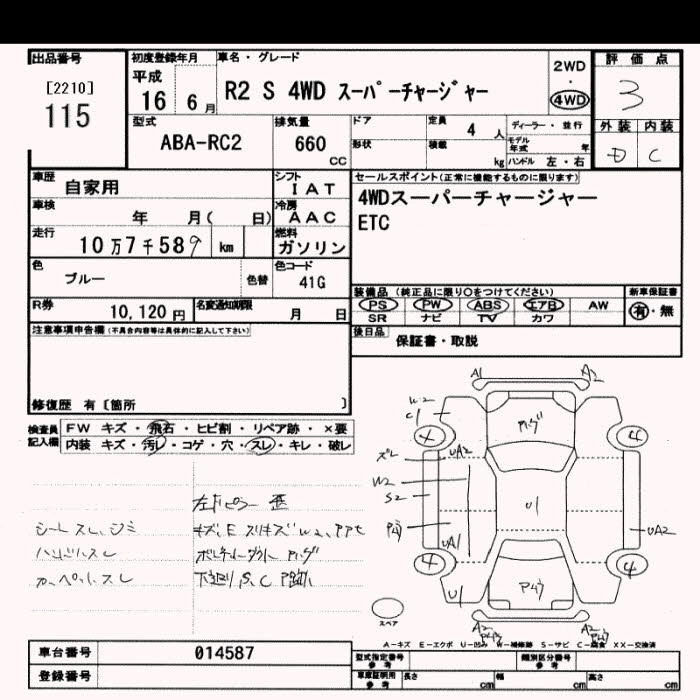 出品番号
[2210]
115
初度登録年月
平成
16 6月
車名・グレード
R2 S 4WD スーパーチャージャー
2WD
・
4WD
評価点
3
外装 内装
D C
型式
ABA-RC2
排気量
660
CC
ドア
形状
定員
4 人
積載
kg
ディーラー・並行
モデル年式 年
ハンドル 左・右
車歴
自家用
シフト
IAT
車検
年 月( 日)
冷房
AAC
走行
10万7千589 km
燃料
ガソリン
色
ブルー
色替
色コード
41G
R券
10,120円
名変通知期限
月 日
セールスポイント(正常に機能するものに限ります)
4WDスーパーチャージャー
ETC
装備品(純正品に限り○をつけてください)
PS PW ABS エアB AW
SR ナビ TV カワ
新車保証書
有・無
後日品
保証書・取説
注意事項申告欄(不具合内容等は具体的に記入して下さい)
修復歴 有〔箇所 〕
検査員
記入欄
FW キズ・飛石・ヒビ割・リペア跡・×要
内装 キズ・汚レ・コゲ・穴・スレ・キレ・破レ
シートスレ、シミ
ハンドルスレ
カーペットスレ
下廻りS、C
A1 A2
W2
C1
X 4
UA2
W2
S2
U1
UA1
UA2
4 4
U1
A2 A2
スペア
A-キズ E-エクボ U-凹み W-補修跡 S-サビ C-腐食 XX-交換済
車台番号
014587
登録番号
型式指定番号
参考
類別区分番号
参考
車庫証明用
参考
長さ cm
幅 cm
高さ cm